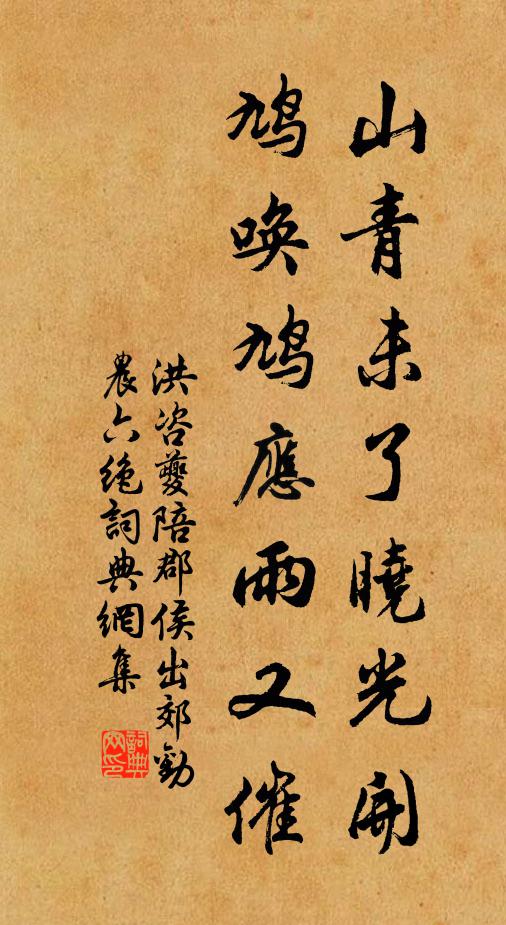 山青未了曉光開
鳩喚鳩應雨又催
洪咨夔陪郡侯出郊勸
農六絕詞典網集
詞典
網印